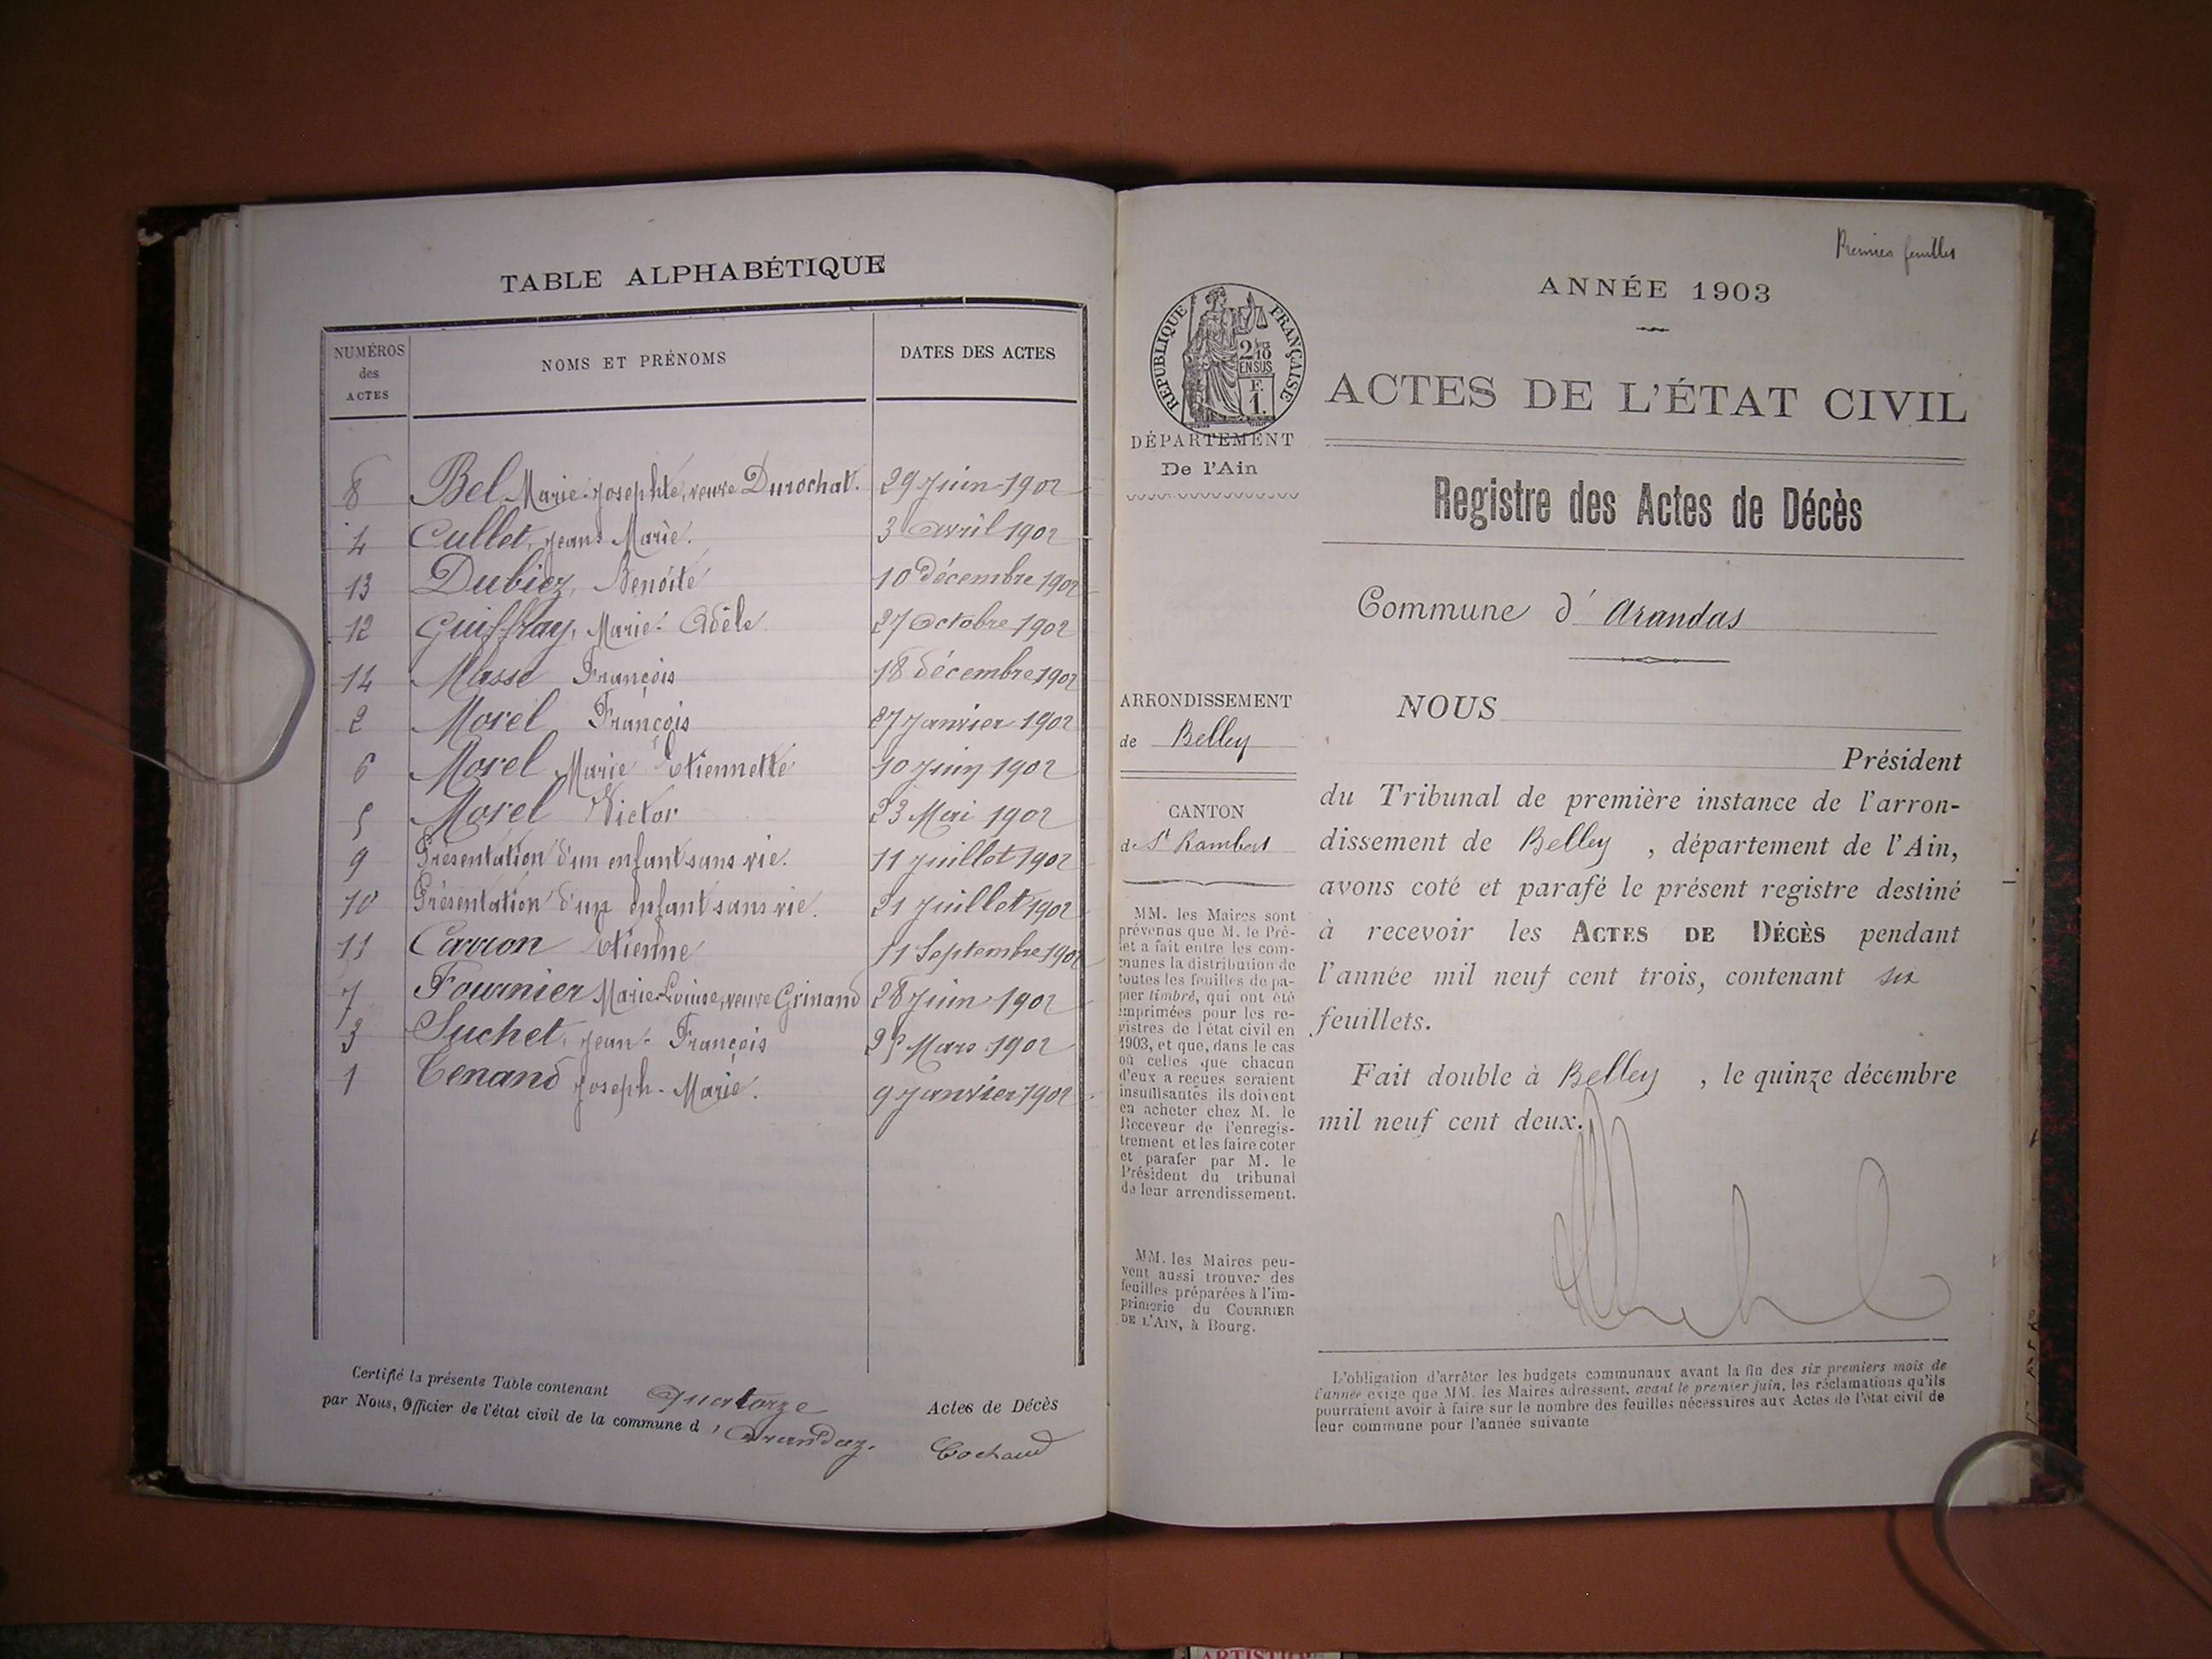 TABLE ALPHABÉTIQUE
NUMÉROS des ACTES
NOMS ET PRÉNOMS
DATES DES ACTES
8 Bel Marie-Josephte, veuve Durochat. 29 Juin 1902
4 Cullet, Jean-Marie. 3 avril 1902
13 Dubiez, Benoîte 10 décembre 1902
12 Guiffray, Marie-Adèle 27 Octobre 1902
14 Masse François 18 décembre 1902
2 Morel François 27 Janvier 1902
6 Morel Marie Etiennette 10 Juin 1902
5 Morel Victor 23 Mai 1902
9 Présentation d'un enfant sans vie. 11 Juillet 1902
10 Présentation d'un enfant sans vie. 21 Juillet 1902
11 Carron Etienne 11 Septembre 1902
7 Fournier Marie-Louise, veuve Grinand 28 Juin 1902
3 Suchet, Jean-François Mars 1902
1 Tenand Joseph-Marie. 9 Janvier 1902
Certifié la présente Table contenant Quatorze Actes de Décès
par Nous, Officier de l'état civil de la commune d'Arandaz.
Cochaud
Premier feuillet
ANNÉE 1903
RÉPUBLIQUE FRANÇAISE
2/10 EN SUS
F. 1.
DÉPARTEMENT
De l'Ain
ACTES DE L'ÉTAT CIVIL
Registre des Actes de Décès
Commune d'Arandas
ARRONDISSEMENT
de Belley
CANTON
de St Rambert
MM. les Maires sont
prévenus que M. le Pré-
fet a fait entre les com-
munes la distribution de
toutes les feuilles de pa-
pier timbré, qui ont été
imprimées pour les re-
gistres de l'état civil en
1903, et que, dans le cas
où celles que chacun
d'eux a reçues seraient
insuffisantes ils doivent
en acheter chez M. le
Receveur de l'enregis-
trement et les faire coter
et parafer par M. le
Président du tribunal
de leur arrondissement.
MM. les Maires peu-
vent aussi trouver des
feuilles préparées à l'im-
primerie du COURRIER
DE L'AIN, à Bourg.
NOUS
Président
du Tribunal de première instance de l'arron-
dissement de Belley, département de l'Ain,
avons coté et parafé le présent registre destiné
à recevoir les ACTES DE DÉCÈS pendant
l'année mil neuf cent trois, contenant six
feuillets.
Fait double à Belley, le quinze décembre
mil neuf cent deux.
L'obligation d'arrêter les budgets communaux avant la fin des six premiers mois de
l'année exige que MM. les Maires adressent, avant le premier juin, les réclamations qu'ils
pourraient avoir à faire sur le nombre des feuilles nécessaires aux Actes de l'état civil de
leur commune pour l'année suivante